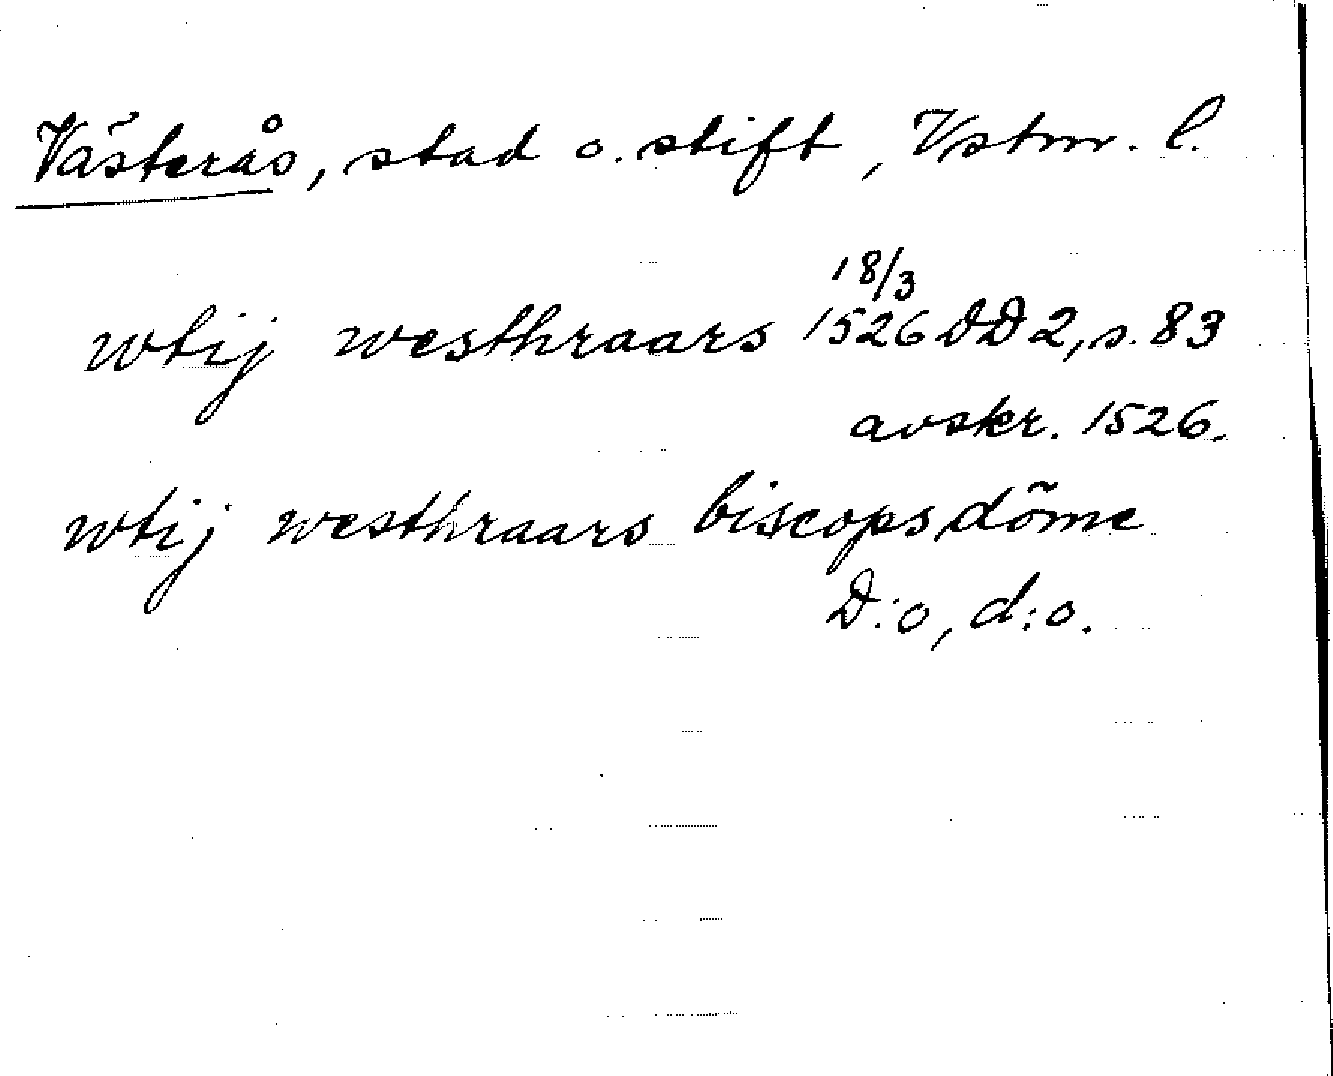 Västerås, stad o. stift, Vstm. l.
wtij westhraars 18/3 1526 DD 2, s. 83
avskr. 1526.
wtij westhraars biscopsdöme
D:o, d:o.